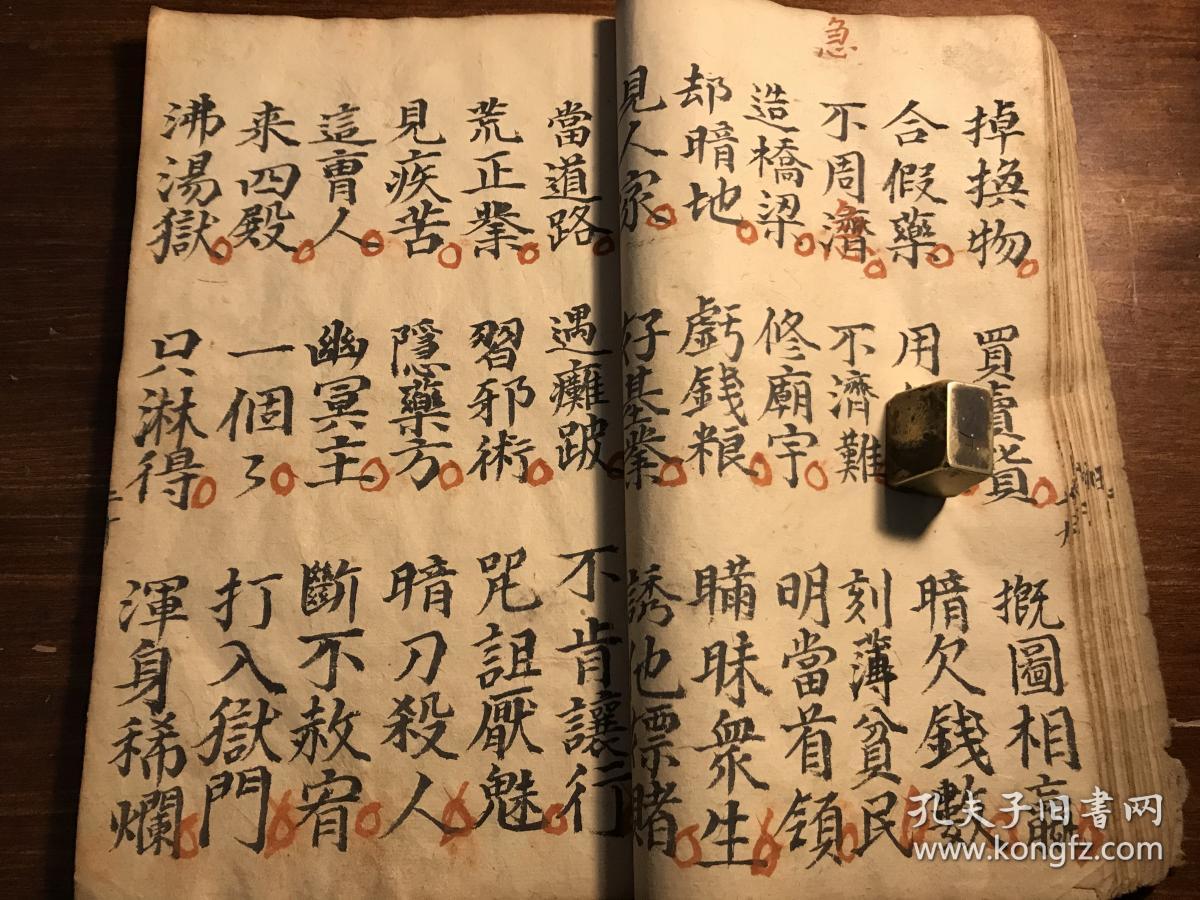 急
掉換物 買賣貨 摡圖相
合假藥 用 暗欠錢數
不周濟 不濟難 刻薄貧民
造橋梁 修廟宇 明當首領
却暗地 虧錢粮 瞞昧衆生
見人家 好基業 誘他嫖賭
當道路 遇癱跛 不肯讓行
荒正業 習邪術 咒詛厭魅
見疾苦 隱藥方 暗刀殺人
這曹人 幽冥主 斷不赦宥
来四殿 一個了 打入獄門
沸湯獄 只淋得 渾身稀爛
孔夫子旧书网
www.kongfz.com